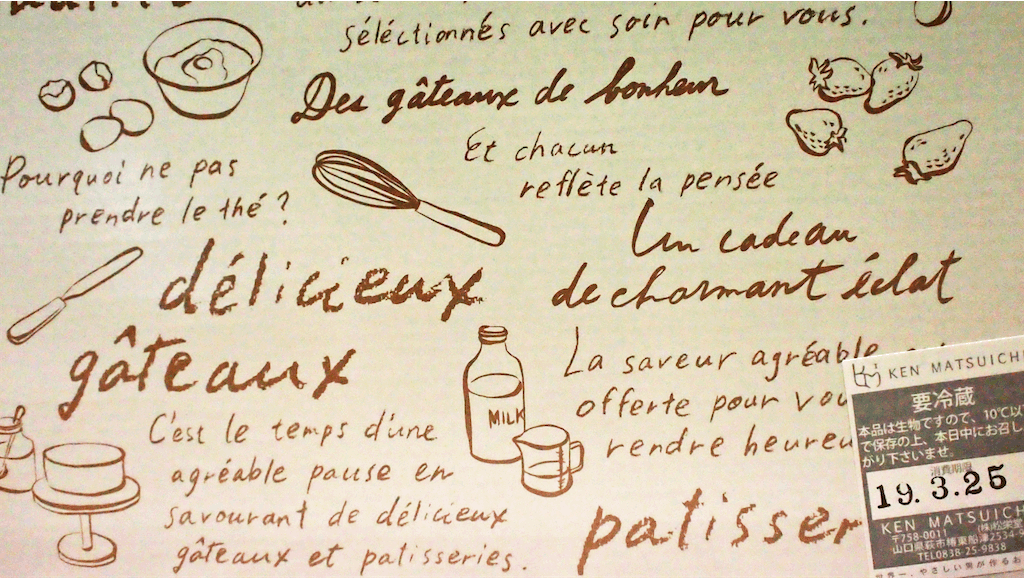 séléctionnés avec soin pour vous.
Des gâteaux de bonheur
Et chacun
reflète la pensée
Pourquoi ne pas
prendre le thé ?
Un cadeau
de charmant éclat
délicieux
gâteaux
MILK
La saveur agréable
offerte pour
rendre
C'est le temps d'une
agréable pause en
savourant de délicieux
gâteaux et patisseries.
KEN MATSUICHI
要冷蔵
本品は生物ですので、10℃以
で保存の上、本日中にお召し
がり下さいませ。
消費期限
19.3.25
KEN MATSUICH
〒758-0011
山口県萩市椿東船津2534-
TEL0838-25-9838